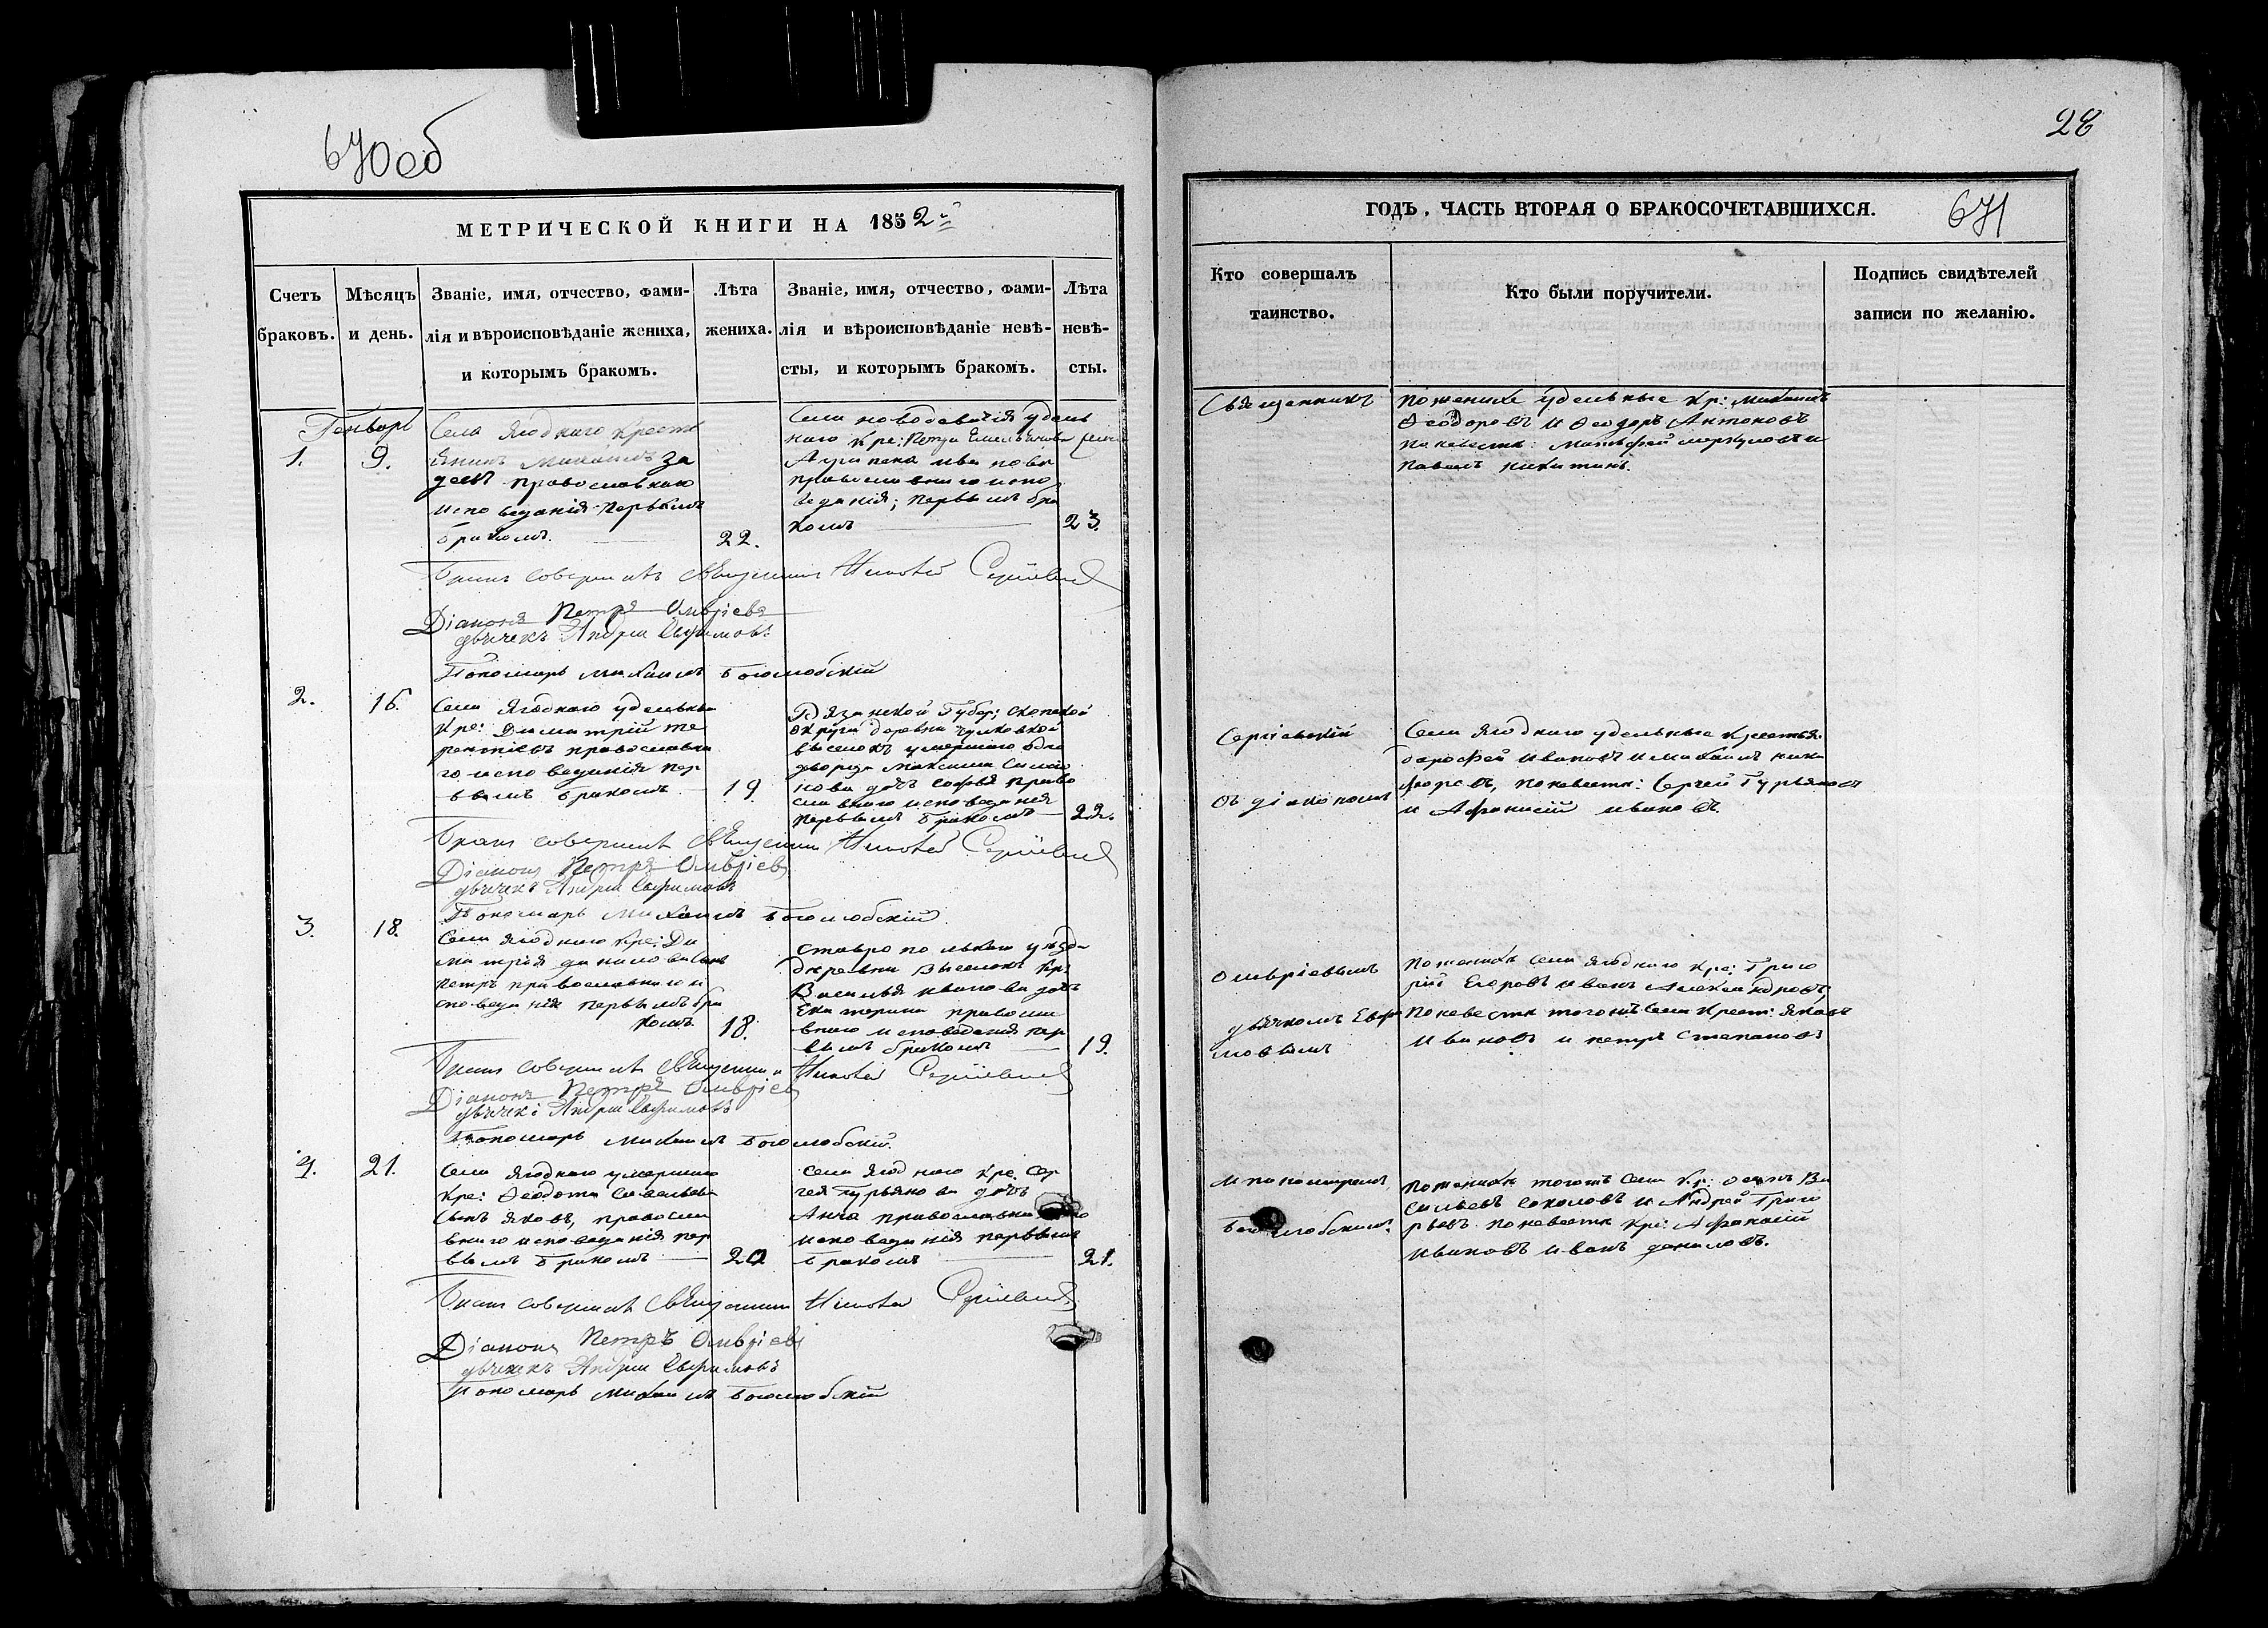 670 об
МЕТРИЧЕСКОЙ КНИГИ НА 1852й
Счетъ браковъ.
Мѣсяцъ и день.
Званіе, имя, отчество, фами-
лія и вѣроисповѣданіе жениха,
и которымъ бракомъ.
Лѣта жениха.
Званіе, имя, отчество, фами-
лія и вѣроисповѣданіе невѣ-
сты, и которымъ бракомъ.
Лѣта невѣ-
сты.
Генварь
1.
9.
Села Ягоднаго крестья
янинъ Михаилъ
православнаго
исповеданія первымъ
бракомъ.
22.
Села новодевичія удель
наго кре: Петра Емельянова
ива нова
православнаго испо
веданія; первымъ бра
комъ
23.
Бракъ совершалъ Священникъ Сергіевскій
Діаконъ Петръ Оливріевъ
дьячекъ Андрей Ефимовъ
Пономарь Михаилъ Боголюбскій
2.
16.
Села Ягоднаго удельна
кре: Димитрій Те
рентіевъ православна
го исповеданія пер
вымъ бракомъ
19
Рязанской Губер:
округи деревни
выселокъ умершаго одно
дворца Максима
нова дочь Софья право
славнаго исповеданія
первымъ бракомъ
22.
Бракъ совершалъ Священникъ Сергіевскій
Діаконъ Петръ Оливріевъ
дьячекъ Андрей Ефимовъ
Пономарь Михаилъ Боголюбскій
3.
18.
Села Ягоднаго кре: Ди
митрія данилова сынъ
Петръ православнаго и
споведанія первымъ бра
комъ
18.
Ставропольскаго уезда
деревни Выселокъ кр:
Василья иванова дочь
Екатерина правосла
внаго исповеданія пер
вымъ бракомъ
19.
Бракъ совершалъ Священникъ Сергіевскій
Діаконъ Петръ Оливріевъ
дьячекъ Андрей Ефимовъ
Пономарь Михаилъ Боголюбскій.
4.
21.
Села Ягоднаго умершаго
кре: Ѳеодота Савельева
сынъ Яковъ, правосла
внаго исповеданія пер
вымъ бракомъ
20
Села Ягоднаго кре. Сер
гея Гурьянова дочь
Анна православна
исповеданія первымъ
бракомъ
21.
Бракъ совершалъ Священникъ Сергіевскій
Діаконъ Петръ Оливріевъ
дьячекъ Андрей Ефимовъ
Пономарь Михаилъ Боголюбскій
28
ГОДЪ, ЧАСТЬ ВТОРАЯ О БРАКОСОЧЕТАВШИХСЯ.
671
Кто совершалъ
таинство.
Кто были поручители.
Подпись свидѣтелей
записи по желанію.
Священникъ
По женихе удельные кр: Михаилъ
Ѳеодоровъ и Ѳеодоръ Антоновъ
По невесте: Матьфей меркуловъ и
Павелъ никитинъ.
Сергіевскій
съ діакономъ
Села Ягоднаго удельные крестья:
дорофей ивановъ и михаилъ ники
форовъ, по невесте: Сергей Гурьяновъ
и Афанасій ивановъ.
Оливріевымъ
дьячкомъ Ефи
мовымъ
По женихе села Ягоднаго кре: Григо
рій Егоровъ иванъ Александровъ,
По невесте тогожъ села крест: Яковъ
Ивановъ и петръ Степановъ
и пономаремъ
Боголюбскимъ.
По женихе тогожъ села кр: осипъ Ва
сильевъ Соколовъ и Андрей Григо
рьевъ по невесте кре: Афанасій
Ивановъ иванъ даниловъ.